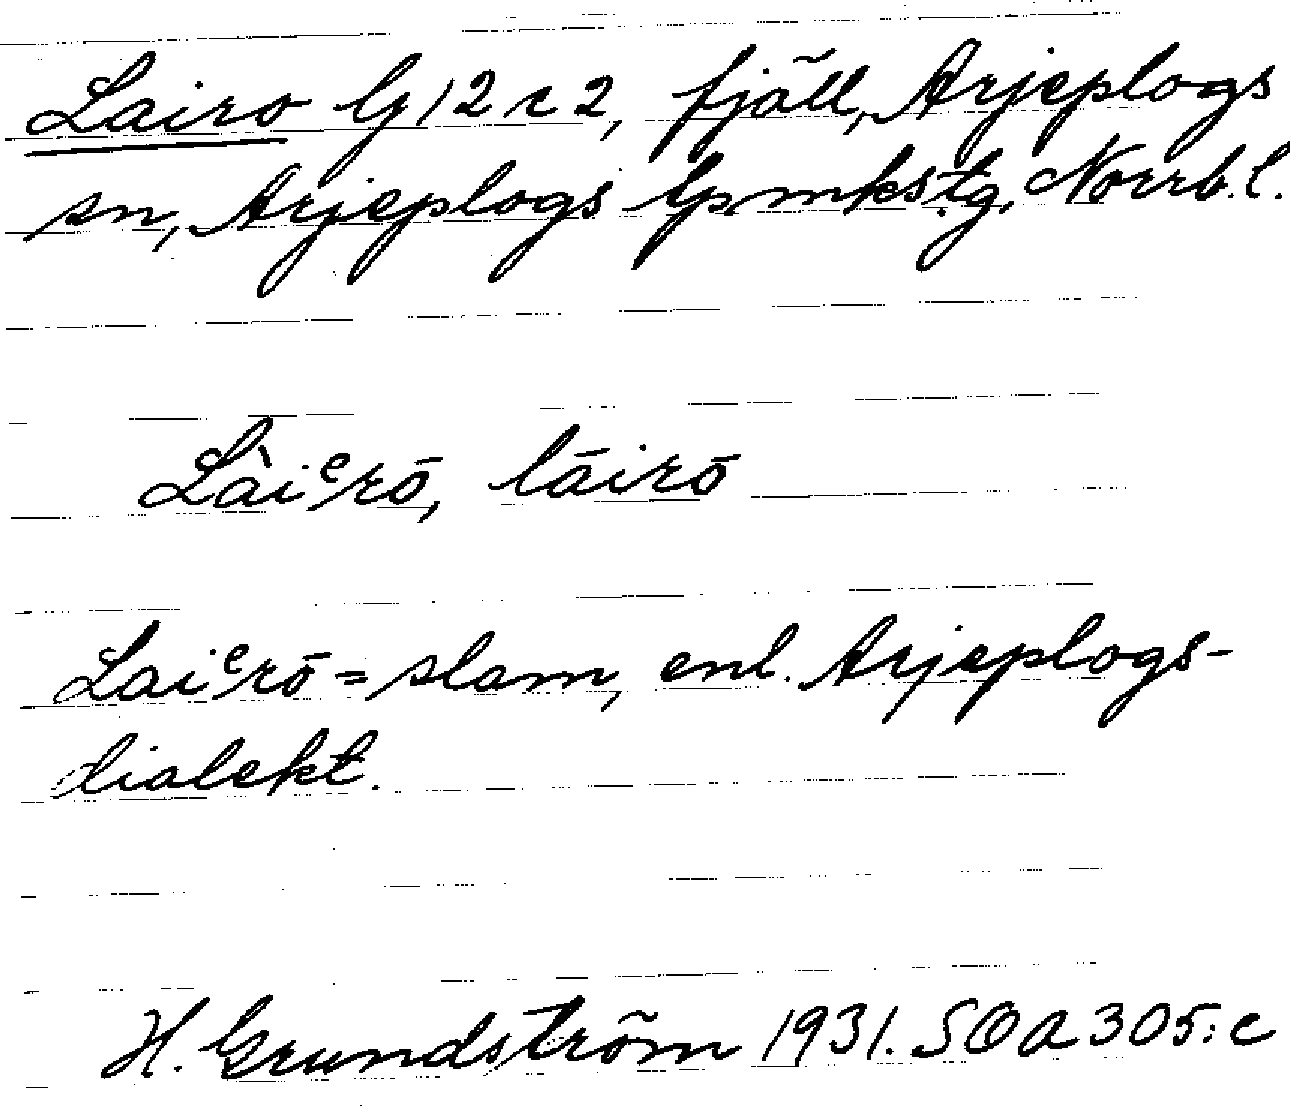 Lairo G 12 c 2, fjäll, Arjeplogs
sn, Arjeplogs lpmkstg. Norrb. l.
Lài͑rō, lāirō
Lai͑rō = slam, enl. Arjeplogs-
dialekt.
H. Grundström 1931. SOA 305:c